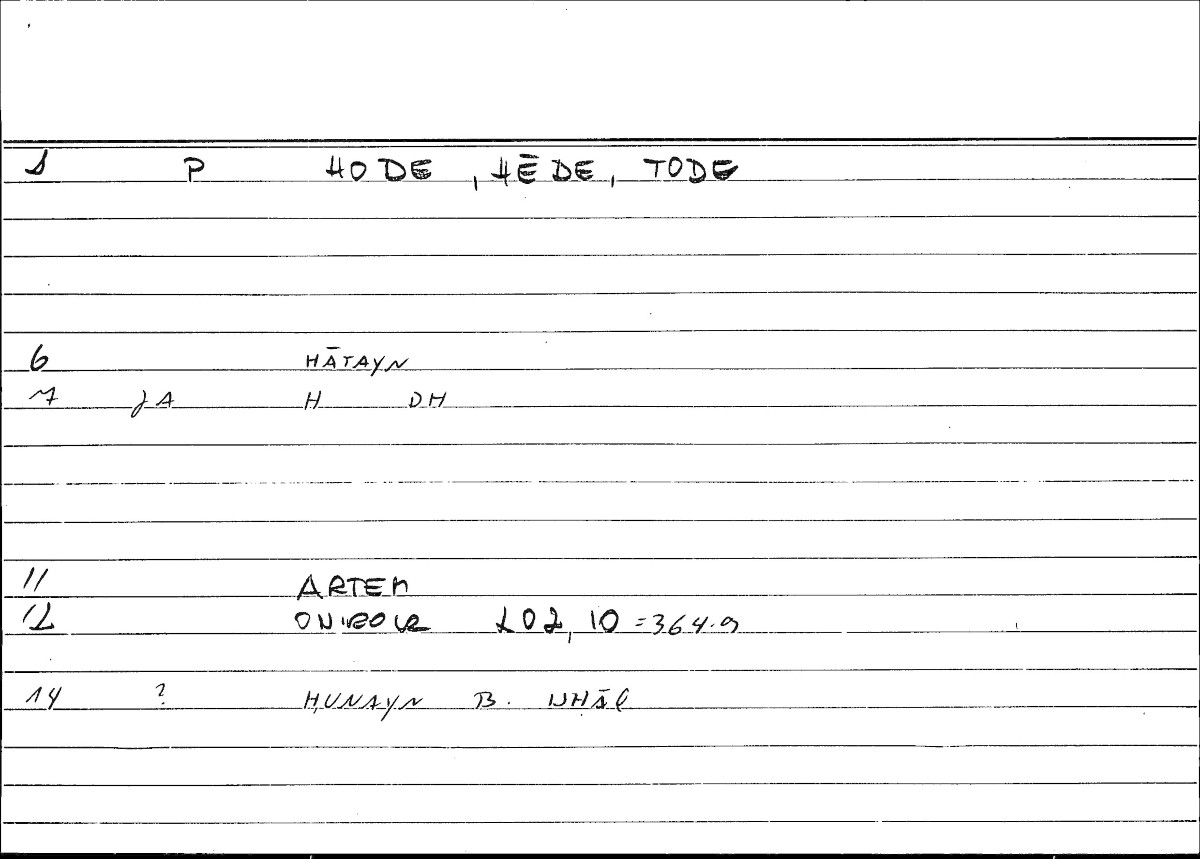 1 P HODE, HĒDE, TODE
6 HĀTAYN
7 JA H DH
11 ARTEM
12 ONIROCR 202, 10 = 364.9
14 ? ḤUNAYN B. ISḤĀQ